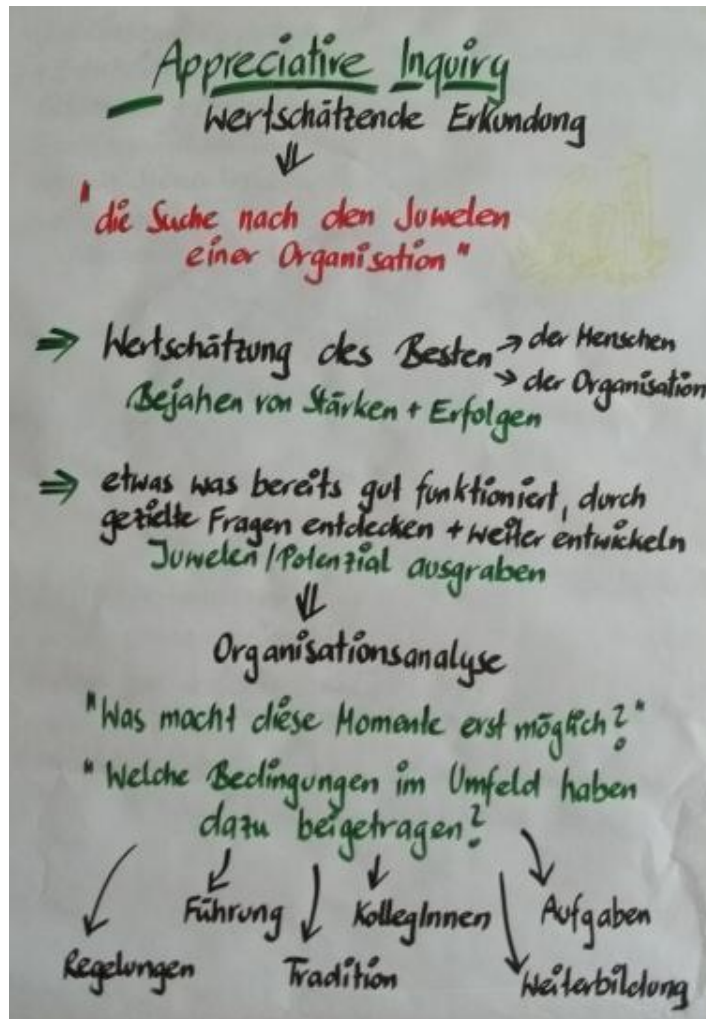 Appreciative Inquiry
Wertschätzende Erkundung
"die Suche nach den Juwelen
einer Organisation"
Wertschätzung des Besten → der Menschen
→ der Organisation
Bejahen von Stärken + Erfolgen
etwas was bereits gut funktioniert, durch
gezielte Fragen entdecken + weiter entwickeln
Juwelen/Potenzial ausgraben
Organisationsanalyse
"Was macht diese Momente erst möglich?"
"Welche Bedingungen im Umfeld haben
dazu beigetragen?
Führung KollegInnen Aufgaben
Regelungen Tradition Weiterbildung